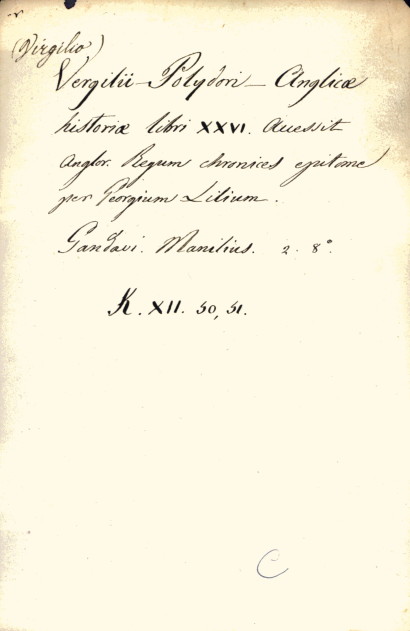 (Virgilio)
Vergilii - Polydori - Anglicæ
historiæ libri XXVI. Accessit
Anglor. Regum chronices epitome
per Georgium Lilium.
Gandavi. Manilius. 2. 8°.
K. XII. 50, 51.
C